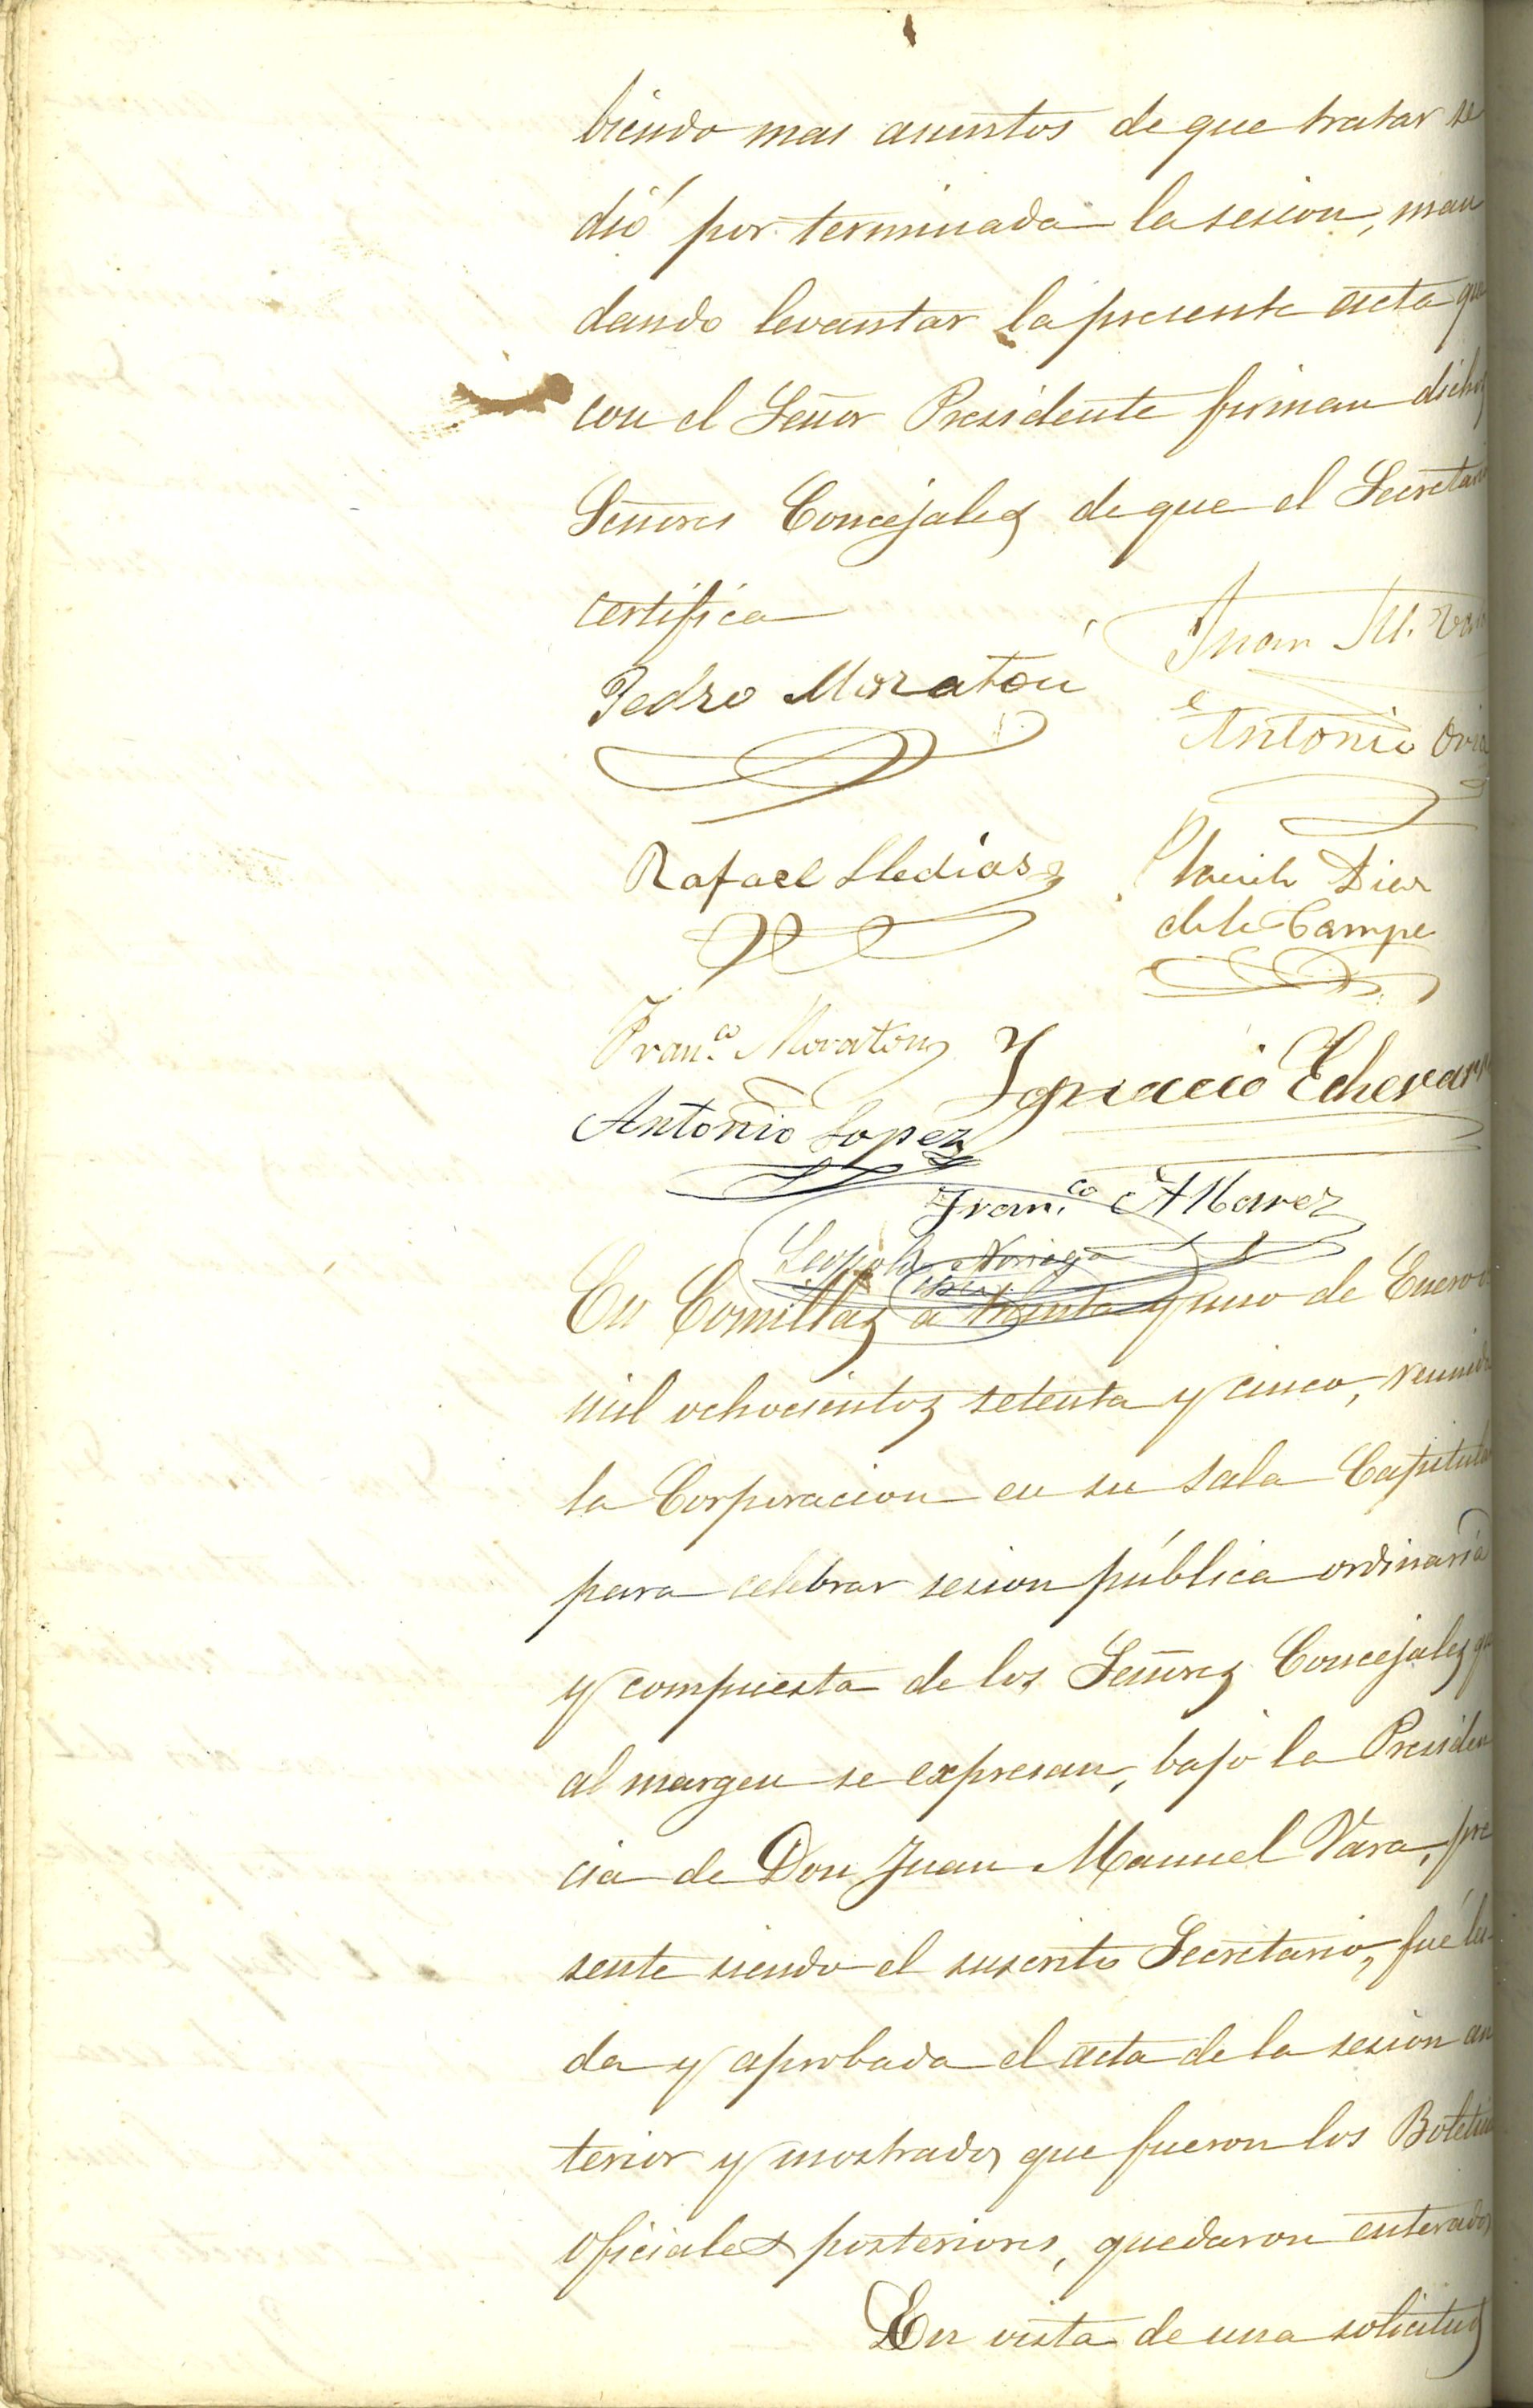 biendo mas asuntos de que tratar se
dió por terminada la sesion, man
dando levantar la presente acta que
con el Señor Presidente firman dichos
Señores Concejales de que el Secretario
certifica
Juan M. Vara
Pedro Moratón
Antonio
Rafael Lledías
Diaz
de la Campa
Fran.co Moraton
Ignacio Echevarr
Antonio Lopez
Fran.co Alvarez
Leopoldo Noriega
En Comillas a treinta y uno de Enero de
mil ochocientos setenta y cinco, reunida
la Corporacion en su sala Capitular
para celebrar sesion pública ordinaria
y compuesta de los Señores Concejales que
al margen se expresan, bajo la Presiden
cia de Don Juan Manuel Vara, pre
sente siendo el suscrito Secretario, fué lei
da y aprobada el acta de la sesion an
terior y mostrados que fueron los Boletines
oficiales posteriores, quedaron enterados
En vista de una solicitud